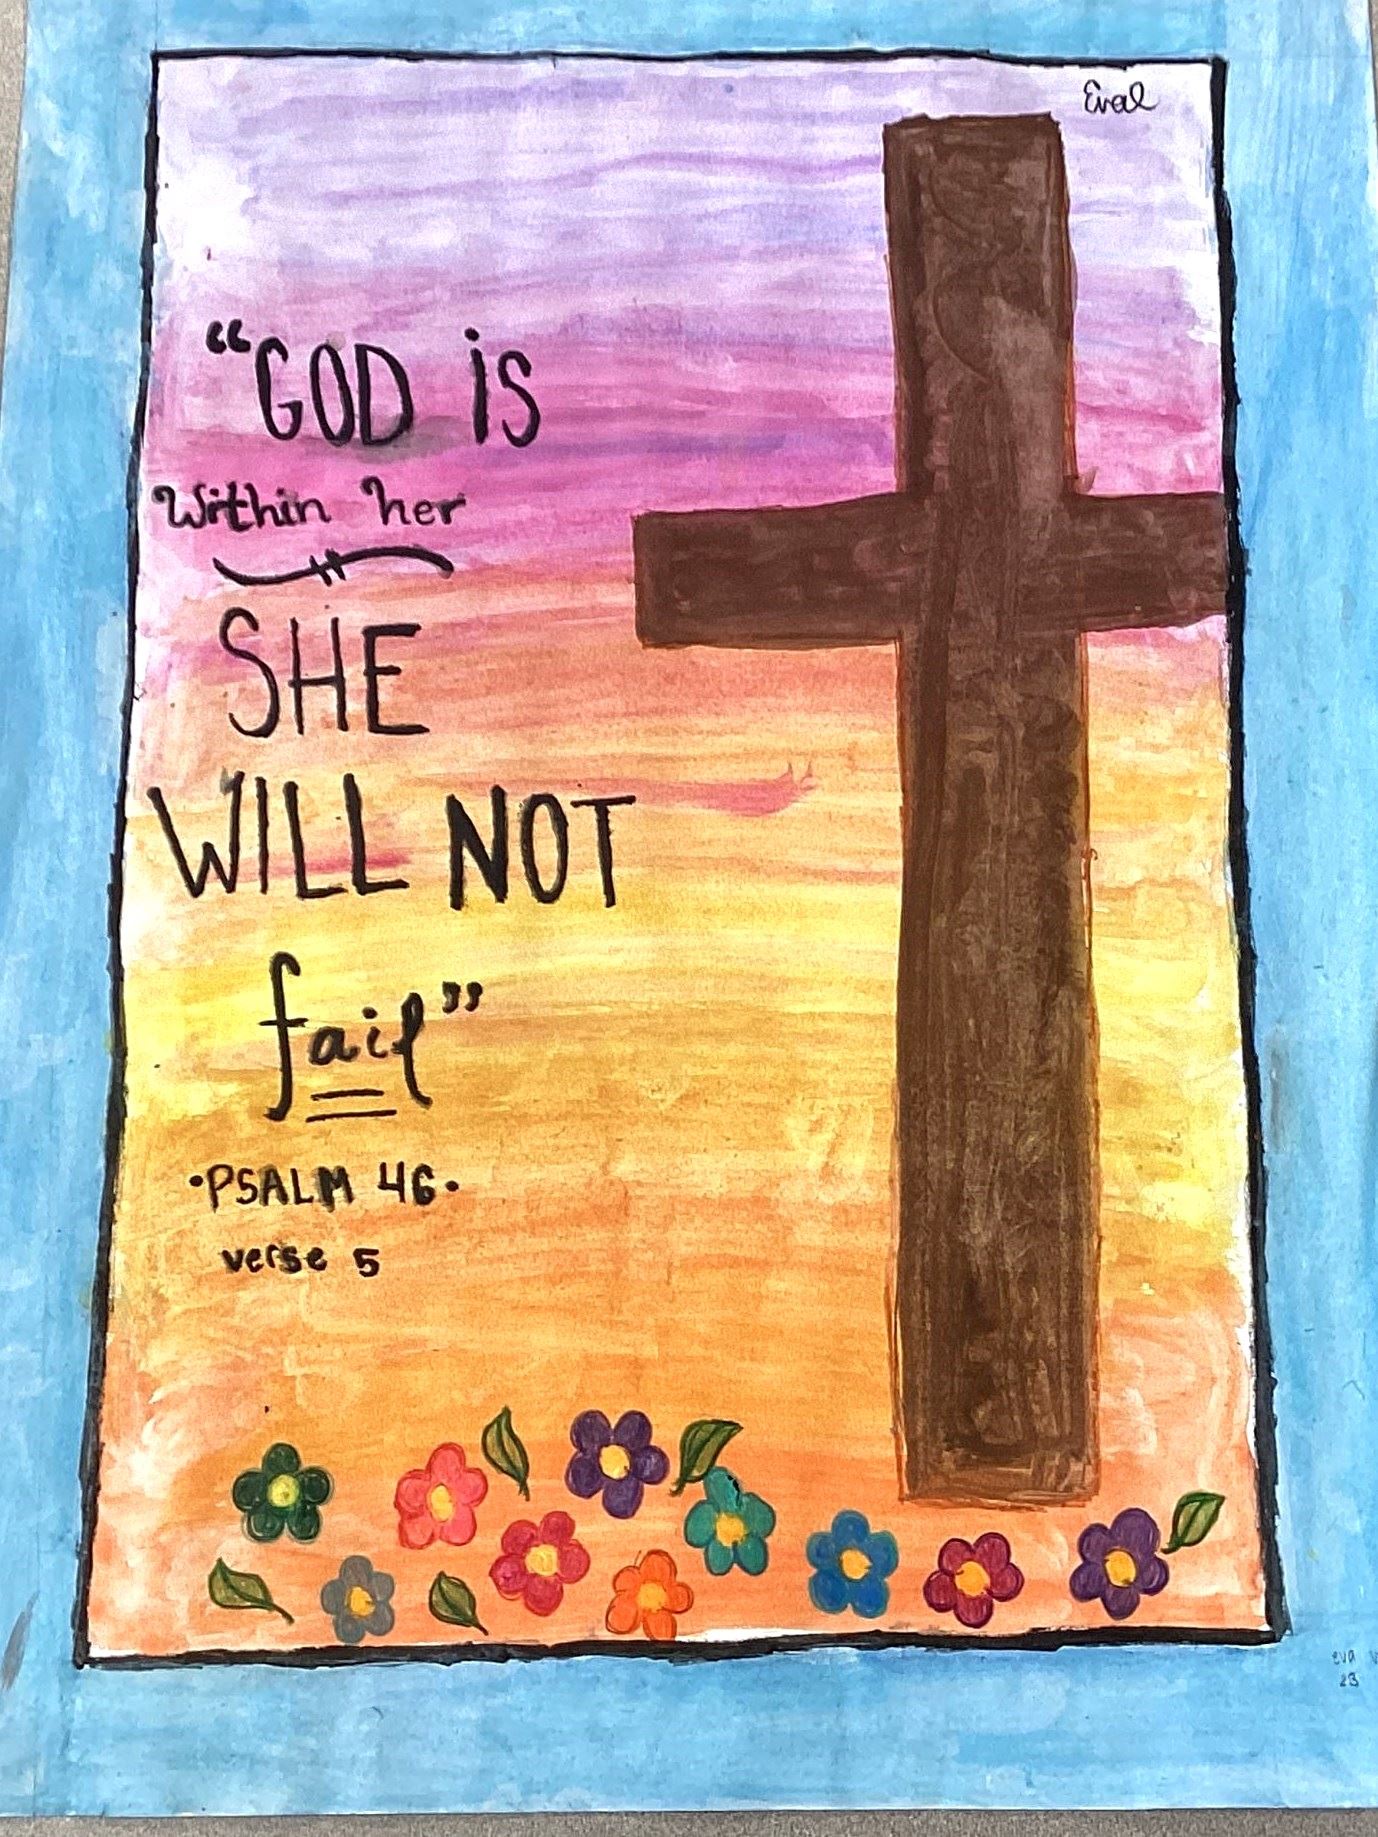 Eval
“GOD is
Within her
SHE
WILL NOT
fail”
•PSALM 46•
verse 5
eva
23